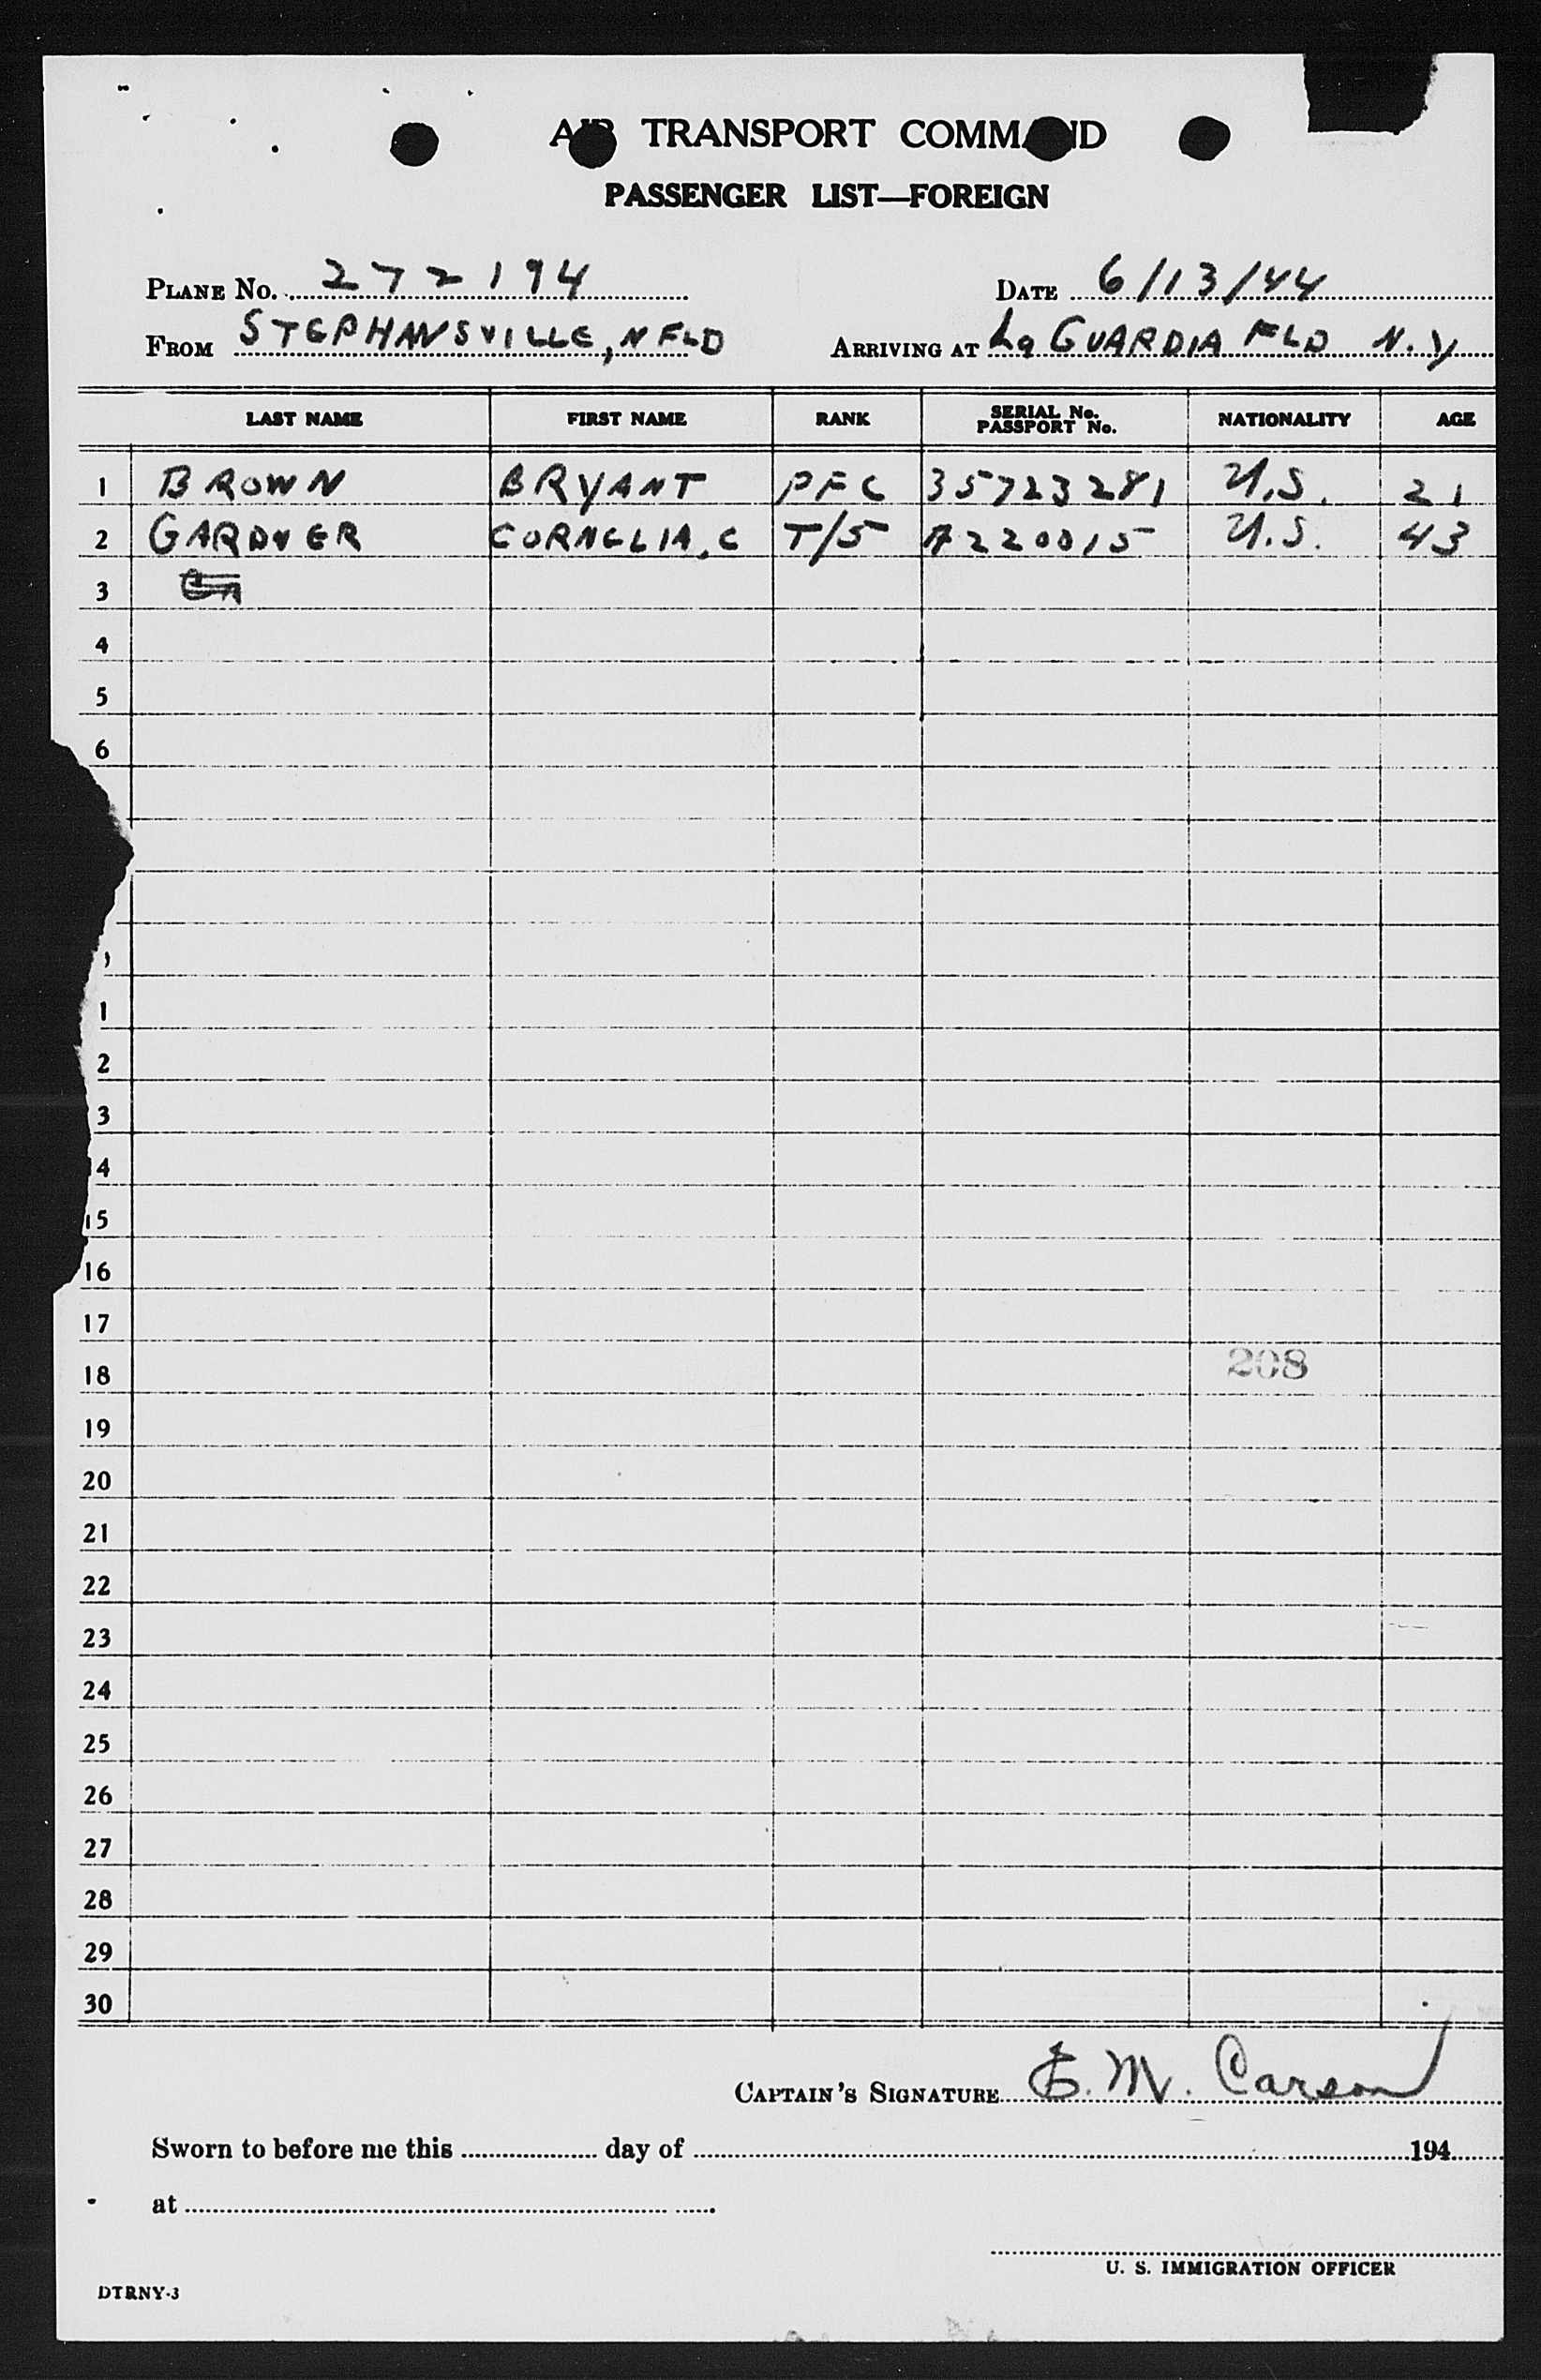 AIR TRANSPORT COMMAND
PASSENGER LIST—FOREIGN
PLANE No. 272194 DATE 6/13/44
FROM STEPHANSVILLE, NFLD ARRIVING AT La GUARDIA FLD N.Y
LAST NAME FIRST NAME RANK SERIAL No. PASSPORT No. NATIONALITY AGE
1 BROWN BRYANT PFC 35723281 U.S. 21
2 GARDNER CORNELIA, C T/5 A220015 U.S. 43
3
4
5
6
1
2
3
14
15
16
17
18 208
19
20
21
22
23
24
25
26
27
28
29
30
CAPTAIN'S SIGNATURE E. M. Carson
Sworn to before me this day of 194
at
U. S. IMMIGRATION OFFICER
DTRNY-3